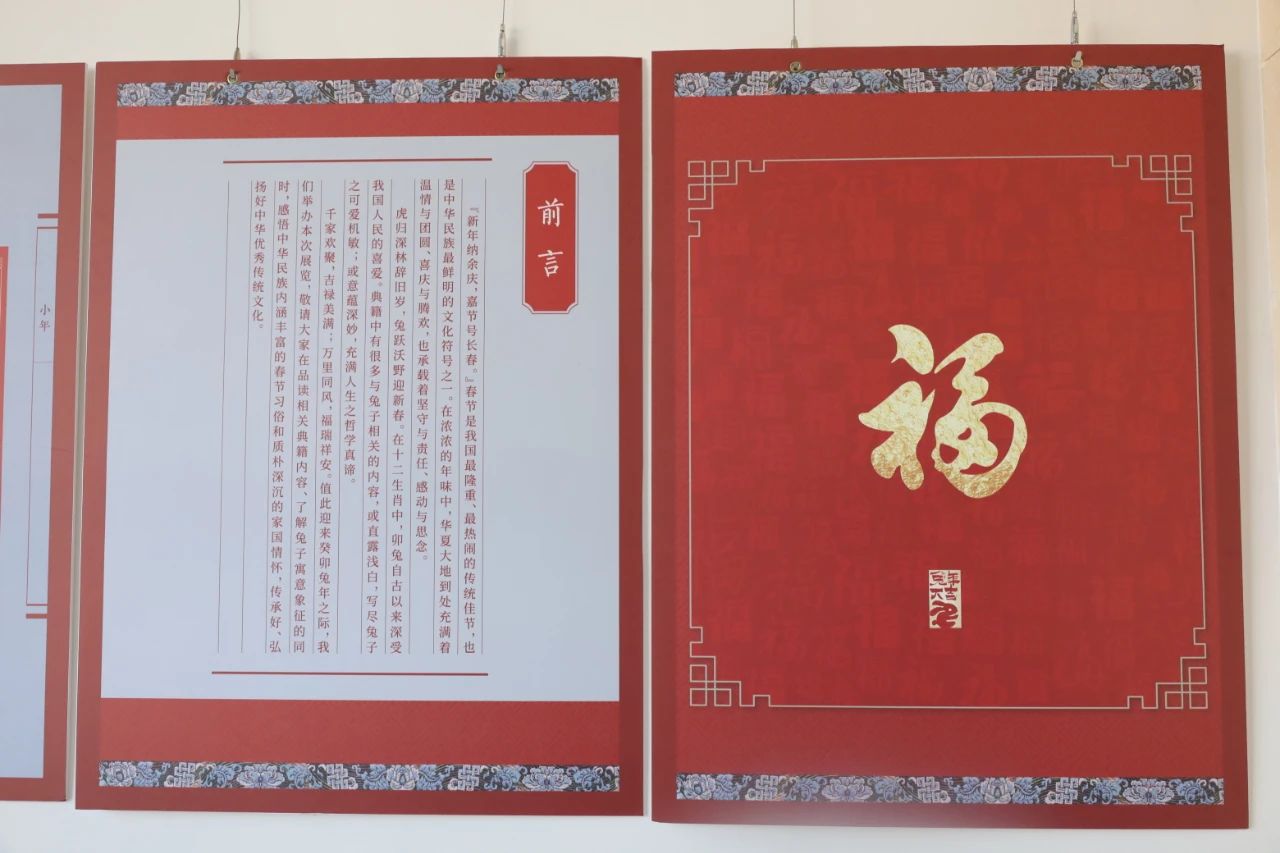 福
兔年大吉
前言
『新年纳余庆，嘉节号长春。』春节是我国最隆重、最热闹的传统佳节，也
是中华民族最鲜明的文化符号之一。在浓浓的年味中，华夏大地到处充满着
温情与团圆、喜庆与腾欢，也承载着坚守与责任、感动与思念。
虎归深林辞旧岁，兔跃沃野迎新春。在十二生肖中，卯兔自古以来深受
我国人民的喜爱。典籍中有很多与兔子相关的内容，或直露浅白，写尽兔子
之可爱机敏；或意蕴深妙，充满人生之哲学真谛。
千家欢聚，吉禄美满；万里同风，福瑞祥安。值此迎来癸卯兔年之际，我
们举办本次展览，敬请大家在品读相关典籍内容、了解兔子寓意象征的同
时，感悟中华民族内涵丰富的春节习俗和质朴深沉的家国情怀，传承好、弘
扬好中华优秀传统文化。
小年